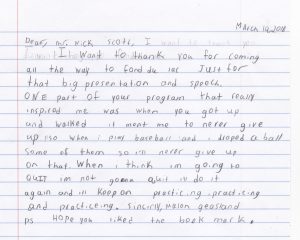 March 19, 2018
Dear, mr. Nick Scott, I want to thank you
I want to thank you for coming
all the way to fond du lac Just for
that big presentation and speech.
ONE part of your program that really
inspired me was when you got up
and walked it ment me to never give
up iso when i play baseball and i droped a ball
some of them so im never give up
on that. When i think im going to
QUIT im not gonna quit iu do it
again and ill keep on practicing, practicing
and practiceing. Sincirly, Mason
ps Hope you liked the book mark.